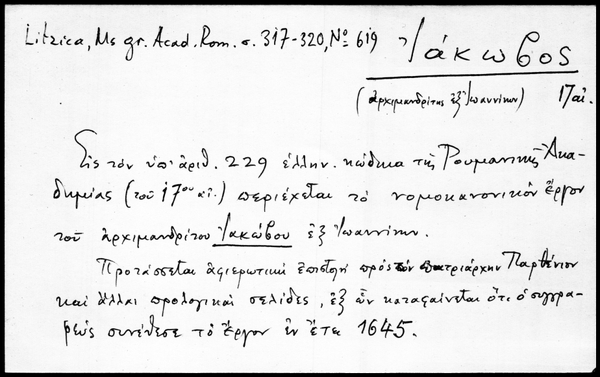 Litzica, Ms gr. Acad. Rom. σ. 317-320, Nο 619
Ἰάκωβος
(ἀρχιμανδρίτης ἐξ Ἰωαννίνων) 17 αἰ.
Εἰς τὸν ὑπ' ἀριθ. 229 ἑλλην. κώδικα τῆς Ρουμανικῆς Ἀκα-
δημίας (τοῦ 17ου αἰ.) περιέχεται τὸ νομοκανονικὸν ἔργον
τοῦ ἀρχιμανδρίτου Ἰακώβου ἐξ Ἰωαννίνων.
Προτάσσεται ἀφιερωτικὴ ἐπιστολὴ πρὸς τὸν πατριάρχην Παρθένιον
καὶ ἄλλαι προλογικαὶ σελίδες, ἐξ ὧν καταφαίνεται ὅτι ὁ συγγρα-
φεὺς συνέθεσε τὸ ἔργον ἐν ἔτει 1645.